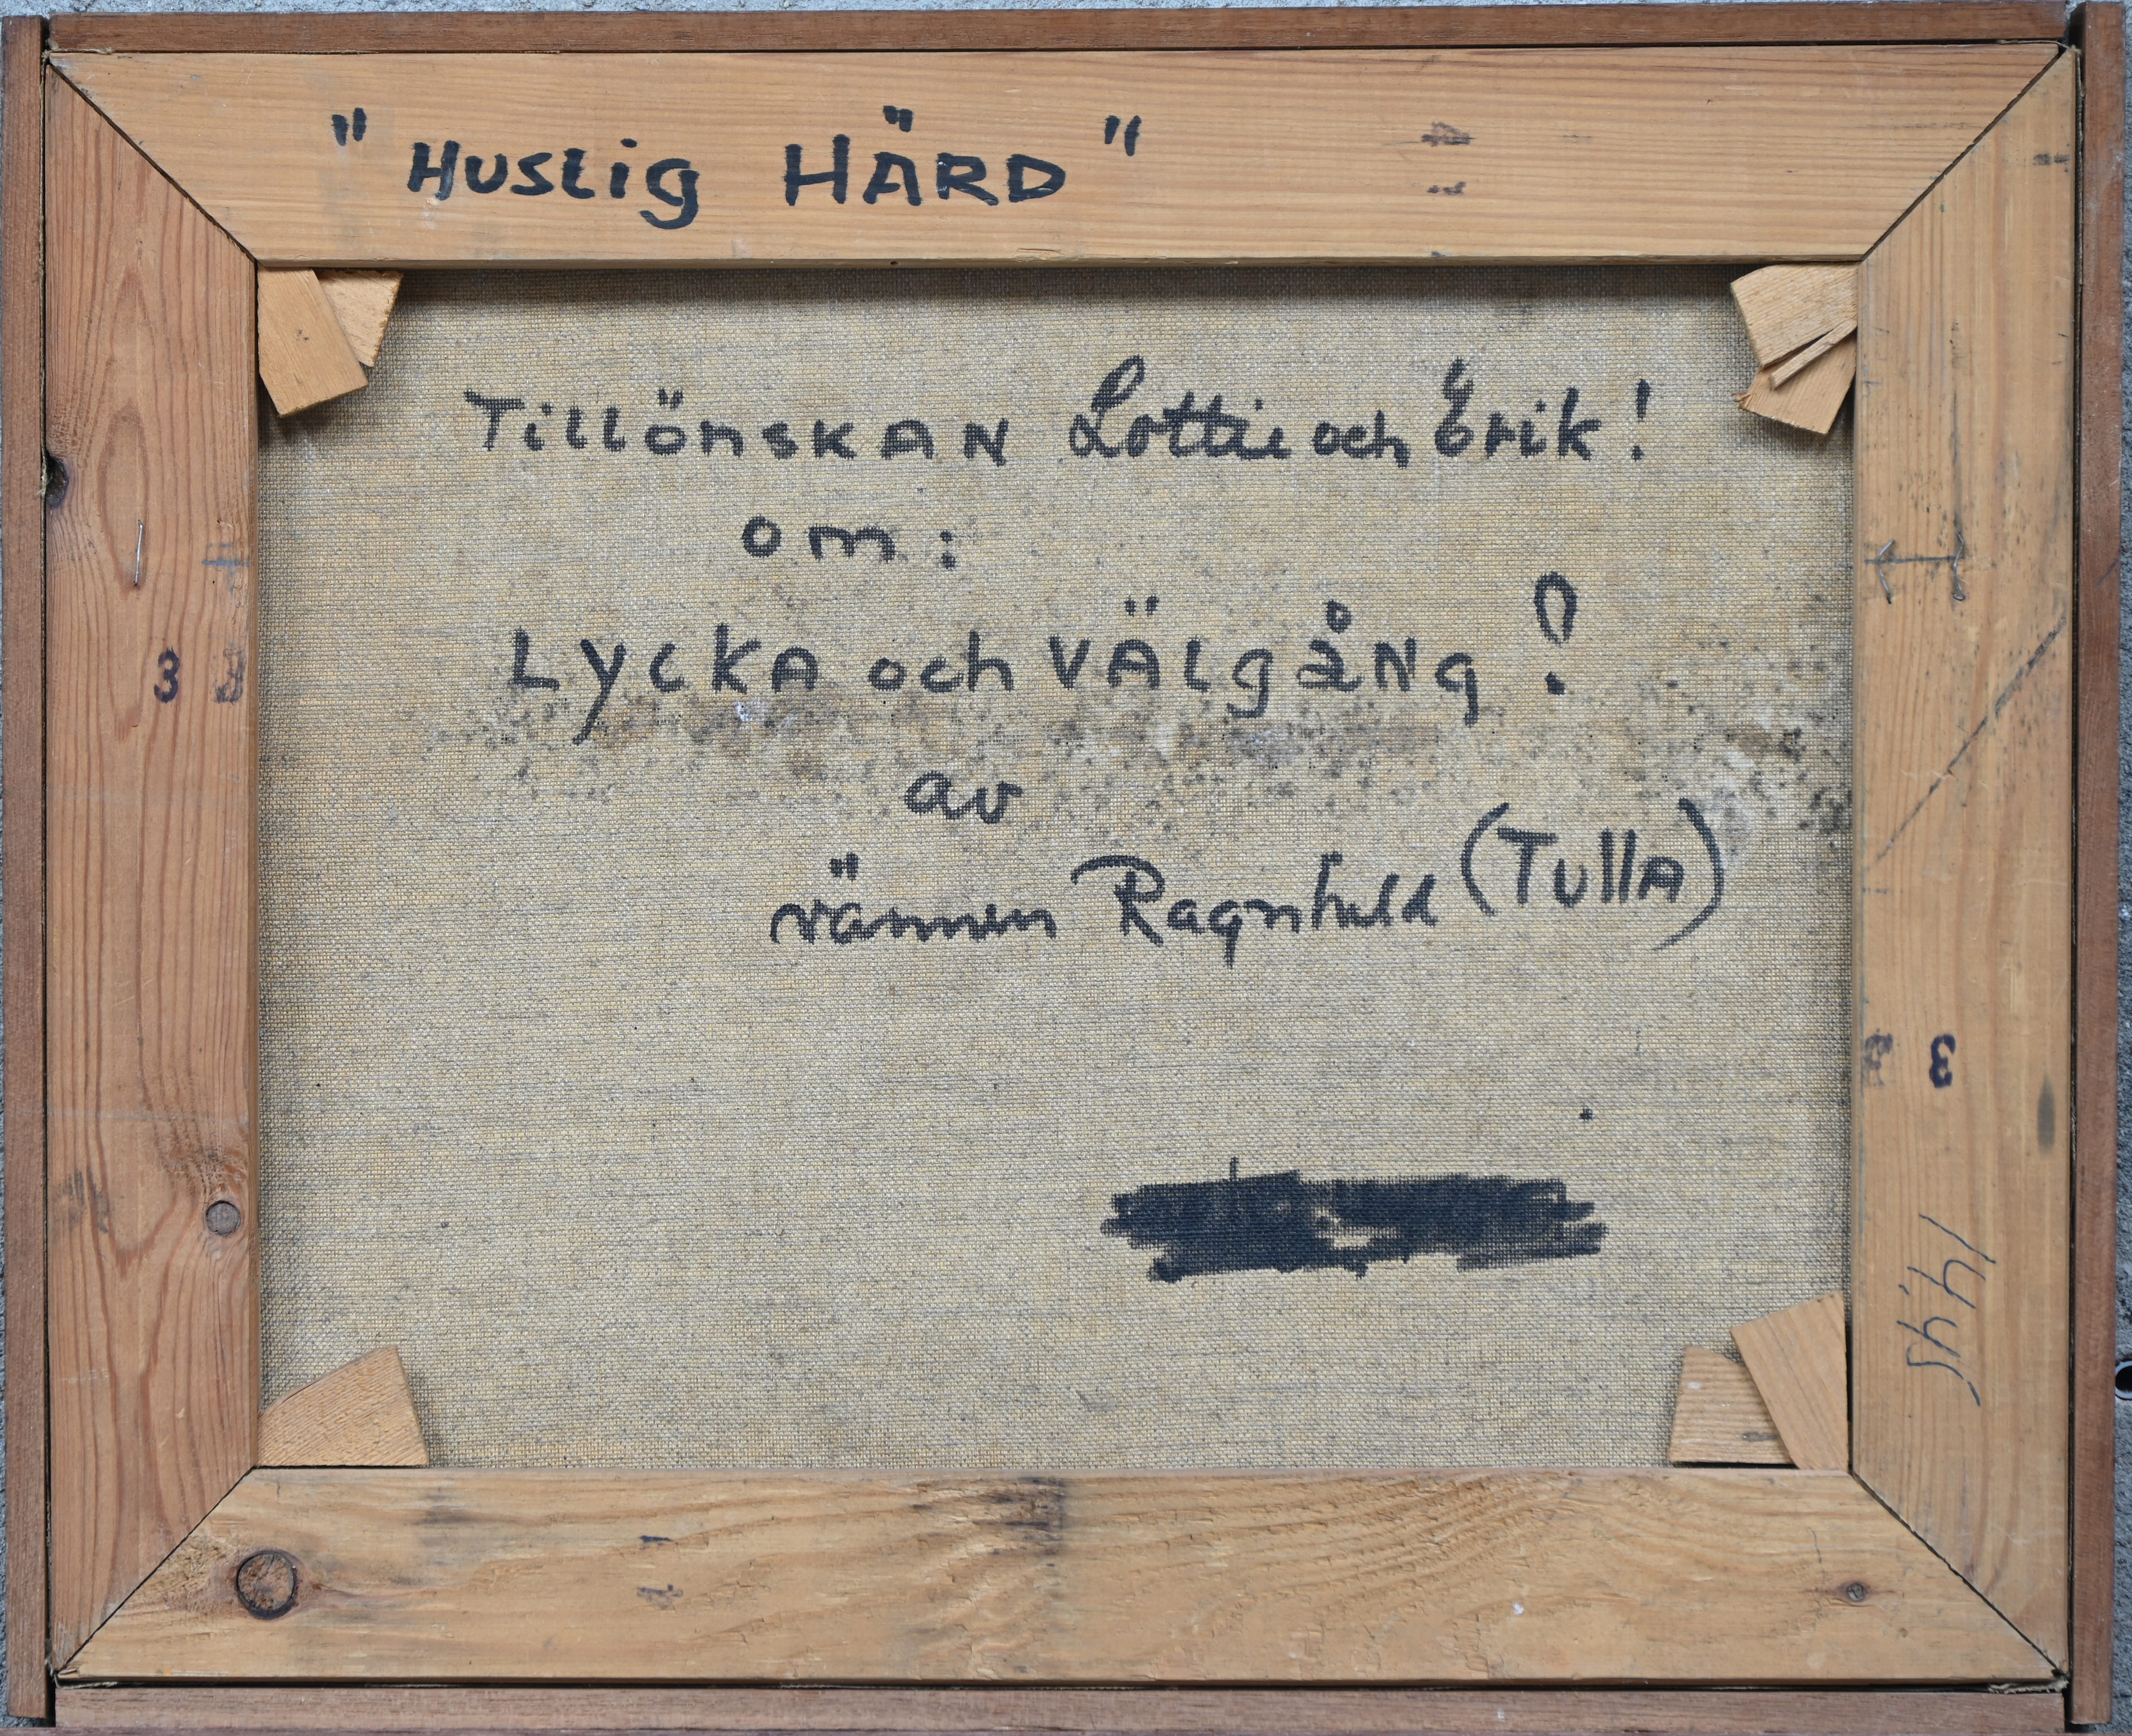 "Huslig HÄRD"
TillönskAN Lottie och Erik!
om:
LyckA och VÄlgåNg!
av
vännen Ragnhild (TullA)
3 3
3 3
14,45